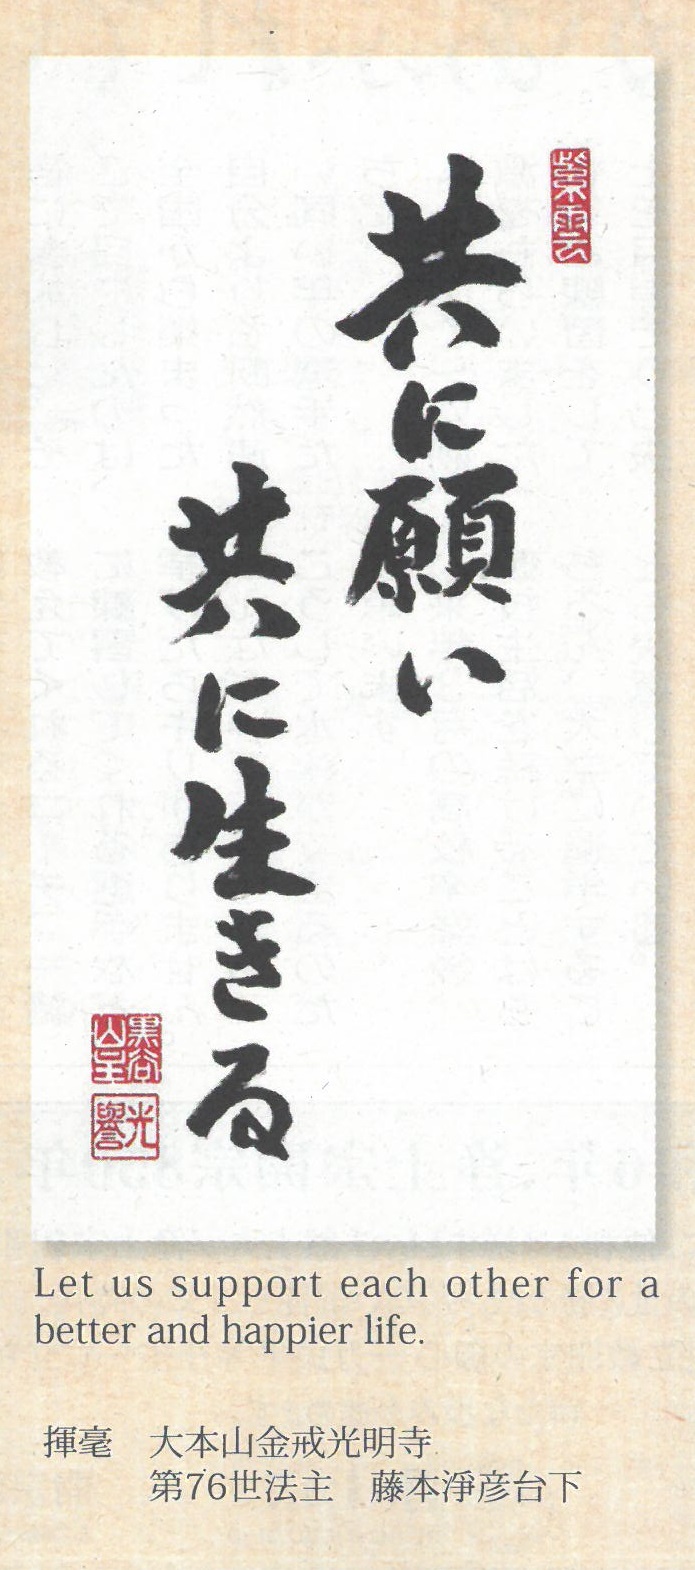 紫雲
共に願い
共に生きる
黒谷
山主
光
譽
Let us support each other for a
better and happier life.
揮毫　大本山金戒光明寺
第76世法主　藤本淨彦台下